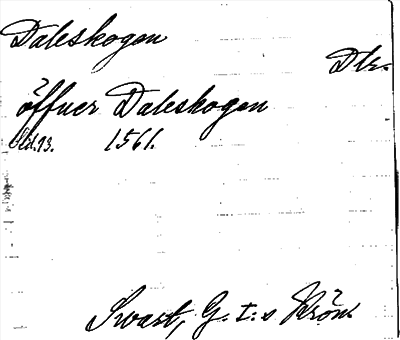 Daleskogen
Dlr.
öffuer Daleskogen
sid. 93. 1561.
Swart, G. I:s Krön.